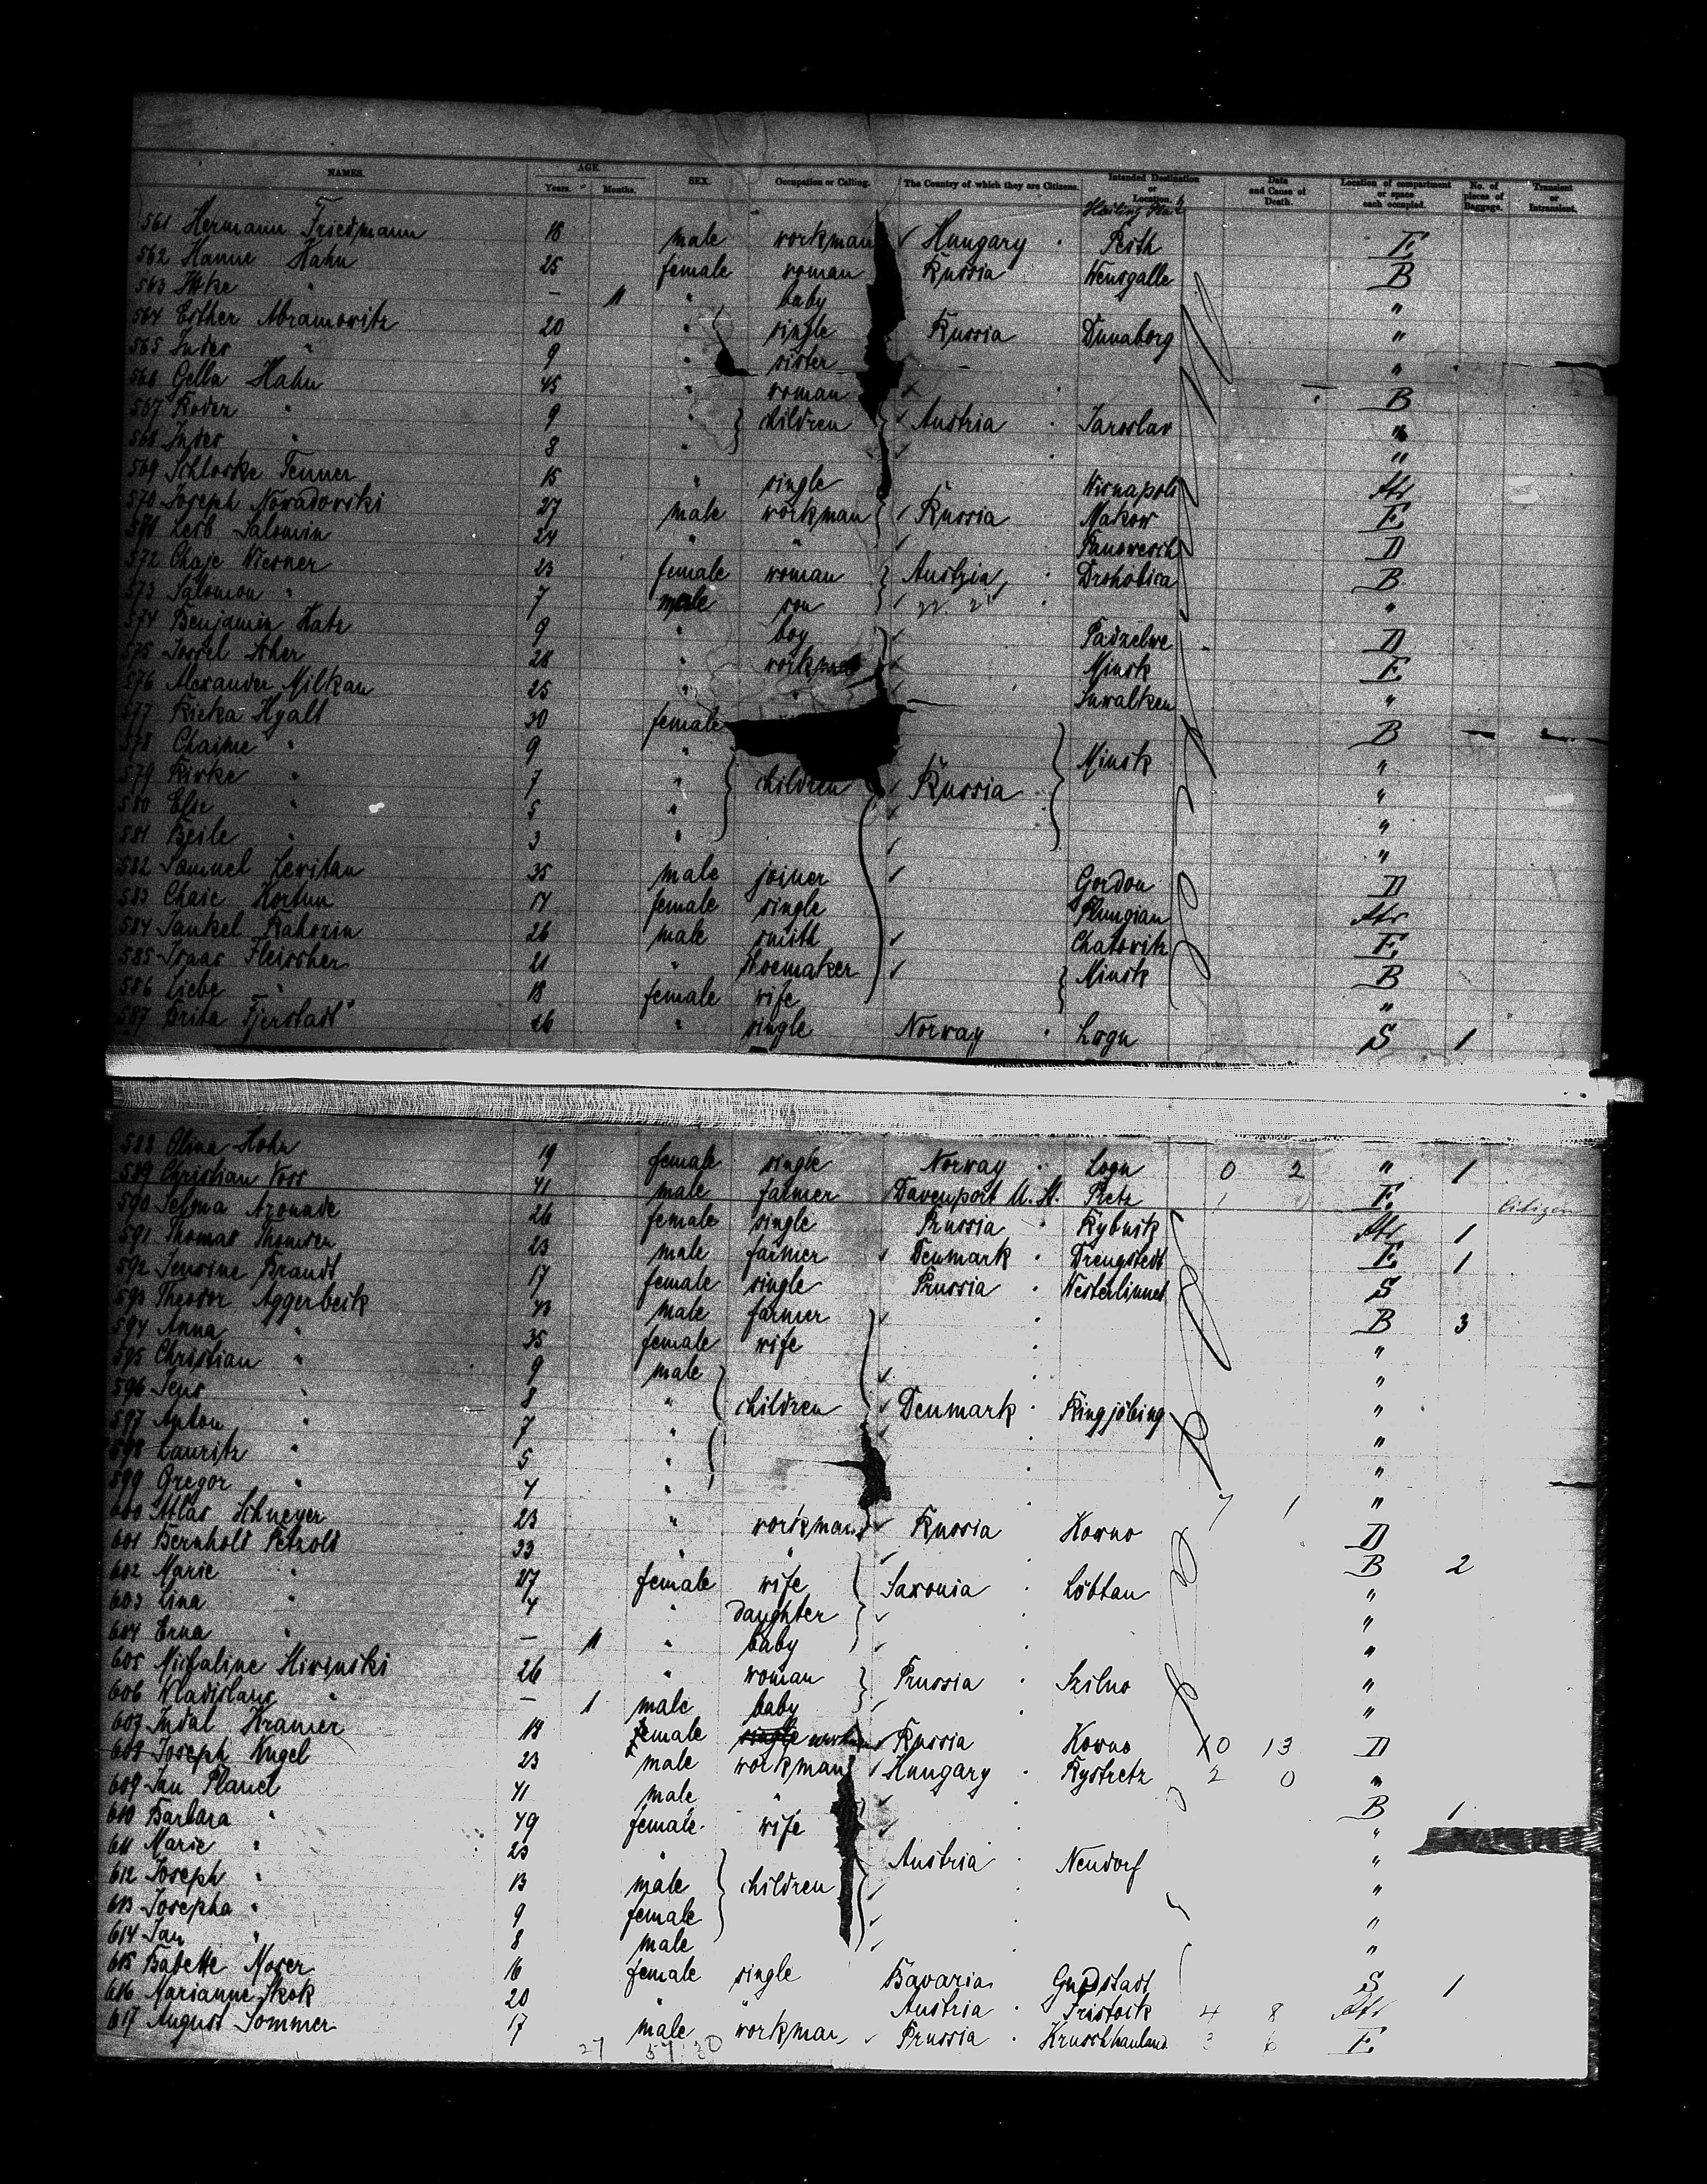 NAMES. AGE. Years. Months. SEX. Occupation or Calling. The Country of which they are Citizens. Intended Destination or Location. Date and Cause of Death. Location of compartment or space each occupied. No. of pieces of Baggage. Transient or Intransient.
561 Hermann Friedmann 18 male workman Hungary Pesth E
562 Hanne Hahn 25 female woman Russia Wensgalle B
563 " — 11 " baby "
564 Esther Abramowitz 20 " single Russia Dunaborg "
565 Judes " 9 " sister "
566 Gella Hahn 45 " woman B
567 Roder " 9 " children Austria Jaroslav "
568 Judes " 8 " "
569 Schloske Tenner 15 " single Wisnapoli Str
570 Joseph Novadovski 27 male workman Russia Makow E
571 Leib Salomin 24 " " Panovesch D
572 Chaje Wiesner 23 female woman Austria Drohobica B
573 Salomon " 7 male son "
574 Benjamin Katz 9 " boy Padzelwe D
575 Jossel Scher 28 " workman Minsk E
576 Alexander Milkan 25 " Suwalken "
577 Rieka Hyalt 30 female B
578 Chaime " 9 " Minsk "
579 Rivke " 7 " children Russia "
580 Else " 5 " "
581 Beile " 3 " "
582 Samuel Levitan 35 male joiner Gordon D
583 Chaie Kortun 17 female single Plungian Str
584 Jankel Rahozin 26 male smith Chatovitz E
585 Isaac Fleischer 21 " shoemaker Minsk B
586 Liebe " 18 female wife "
587 Brita Fjerstadt 26 " single Norway Logn S 1
588 Olina Hohn 19 female single Norway Logn 0 2 " 1
589 Christian Voss 41 male farmer Davenport U. St. Pretz E Citizen
590 Selma Azonade 26 female single Prussia Rybnik Str 1
591 Thomas Thomsen 23 male farmer Denmark Drengstedt E 1
592 Jensine Brandt 17 female single Prussia Westerlinnet S
593 Theodor Aggerbeck 43 male farmer B 3
594 Anna " 35 female wife "
595 Christian " 9 male "
596 Jens " 8 " children Denmark Ringjöbing "
597 Anton " 7 " "
598 Lauritz " 5 " "
599 Gregor " 4 " "
600 Atlas Schneyer 23 " workman Russia Kovno 7 1 D
601 Bernhold Petzold 33 " " B 2
602 Marie " 27 female wife Saxonia Löbtau "
603 Lina " 4 " daughter "
604 Erna " — 11 " baby "
605 Michaline Slivinski 26 " woman Prussia Szilno "
606 Wladislaus " — 1 male baby "
607 Judal Kramer 18 female single workman Russia Kovno 10 13 D
608 Joseph Nugel 23 male workman Hungary Rystretz 2 0 "
609 Jan Planel 41 male " B 1
610 Barbara " 49 female wife "
611 Marie " 23 " Austria Neudorf "
612 Joseph " 13 male children "
613 Josepha " 9 female "
614 Jan " 8 male "
615 Babette Moser 16 female single Bavaria Gundstadt S 1
616 Marianne Skok 20 " " Austria Tristoik 4 8 Str
617 August Sommer 17 male workman Prussia 3 6 E
27 57 30